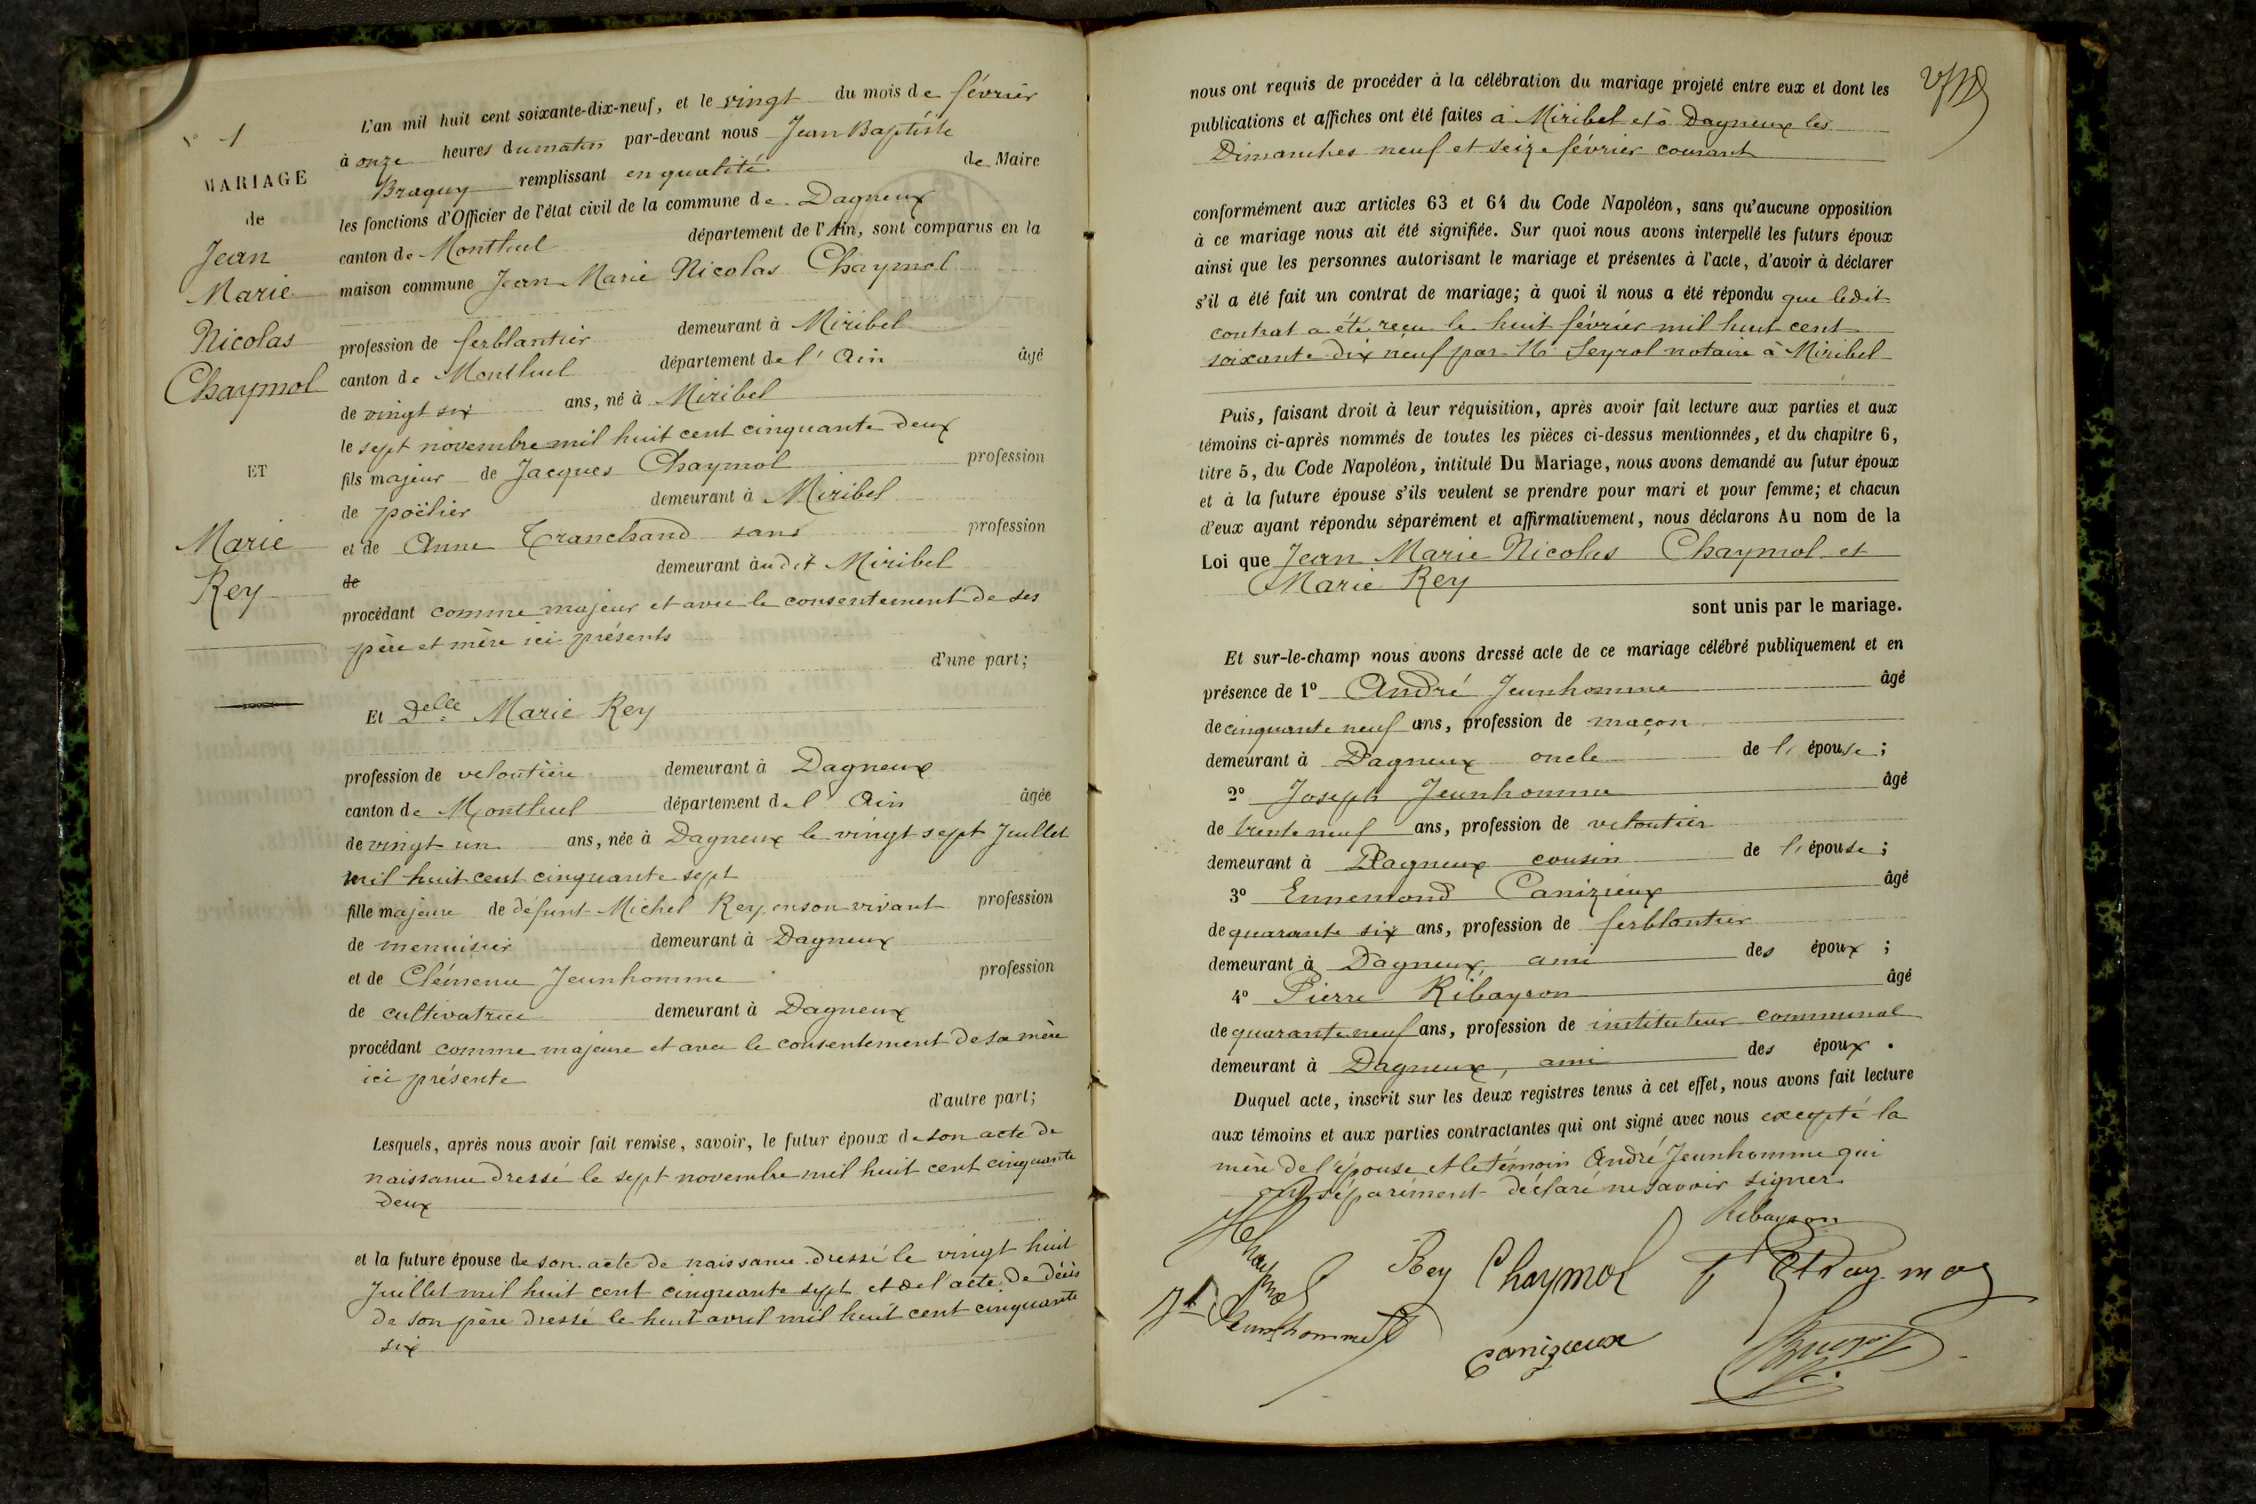 N° 1
MARIAGE
de
Jean
Marie
Nicolas
Chaymol
ET
Marie
Rey
L'an mil huit cent soixante-dix-neuf, et le vingt du mois de février
à onze heures du matin par-devant nous Jean Baptiste
Braguy remplissant en qualité de Maire
les fonctions d'Officier de l'état civil de la commune de Dagneux
canton de Montluel département de l'Ain, sont comparus en la
maison commune Jean Marie Nicolas Chaymol
profession de ferblantier demeurant à Miribel
canton de Montluel département de l'Ain âgé
de vingt six ans, né à Miribel
le sept novembre mil huit cent cinquante deux
fils majeur de Jacques Chaymol profession
de poëlier demeurant à Miribel
et de Anne Tranchand sans profession
de demeurant audit Miribel
procédant comme majeur et avec le consentement de ses
père et mère ici présents
d'une part;
Et Delle Marie Rey
profession de veloutière demeurant à Dagneux
canton de Montluel département de l'Ain âgée
de vingt un ans, née à Dagneux le vingt sept Juillet
mil huit cent cinquante sept
fille majeure de défunt Michel Rey en son vivant profession
de menuisier demeurant à Dagneux
et de Clémence Jeunhomme profession
de cultivatrice demeurant à Dagneux
procédant comme majeure et avec le consentement de sa mère
ici présente
d'autre part;
Lesquels, après nous avoir fait remise, savoir, le futur époux de son acte de
naissance dressé le sept novembre mil huit cent cinquante
deux
et la future épouse de son acte de naissance dressé le vingt huit
Juillet mil huit cent cinquante sept et de l'acte de décès
de son père dressé le huit avril mil huit cent cinquante
six
nous ont requis de procéder à la célébration du mariage projeté entre eux et dont les
publications et affiches ont été faites à Miribel et à Dagneux les
Dimanches neuf et seize février courant
conformément aux articles 63 et 64 du Code Napoléon, sans qu'aucune opposition
à ce mariage nous ait été signifiée. Sur quoi nous avons interpellé les futurs époux
ainsi que les personnes autorisant le mariage et présentes à l'acte, d'avoir à déclarer
s'il a été fait un contrat de mariage; à quoi il nous a été répondu que ledit
contrat a été reçu le huit février mil huit cent
soixante dix neuf par Me Seyrol notaire à Miribel
Puis, faisant droit à leur réquisition, après avoir fait lecture aux parties et aux
témoins ci-après nommés de toutes les pièces ci-dessus mentionnées, et du chapitre 6,
titre 5, du Code Napoléon, intitulé Du Mariage, nous avons demandé au futur époux
et à la future épouse s'ils veulent se prendre pour mari et pour femme; et chacun
d'eux ayant répondu séparément et affirmativement, nous déclarons Au nom de la
Loi que Jean Marie Nicolas Chaymol et
Marie Rey
sont unis par le mariage.
Et sur-le-champ nous avons dressé acte de ce mariage célébré publiquement et en
présence de 1° André Jeunhomme âgé
de cinquante neuf ans, profession de maçon
demeurant à Dagneux oncle de l'épouse;
2° Joseph Jeunhomme âgé
de trente neuf ans, profession de veloutier
demeurant à Dagneux cousin de l'épouse;
3° Ennemond Canizieux âgé
de quarante six ans, profession de ferblantier
demeurant à Dagneux, ami des époux;
4° Pierre Ribayron âgé
de quarante neuf ans, profession de instituteur communal
demeurant à Dagneux, ami des époux.
Duquel acte, inscrit sur les deux registres tenus à cet effet, nous avons fait lecture
aux témoins et aux parties contractantes qui ont signé avec nous excepté la
mère de l'épouse et le témoin André Jeunhomme qui
ont séparément déclaré ne savoir signer
Ribayron
Rey Chaymol
Jeunhomme
Canizieux